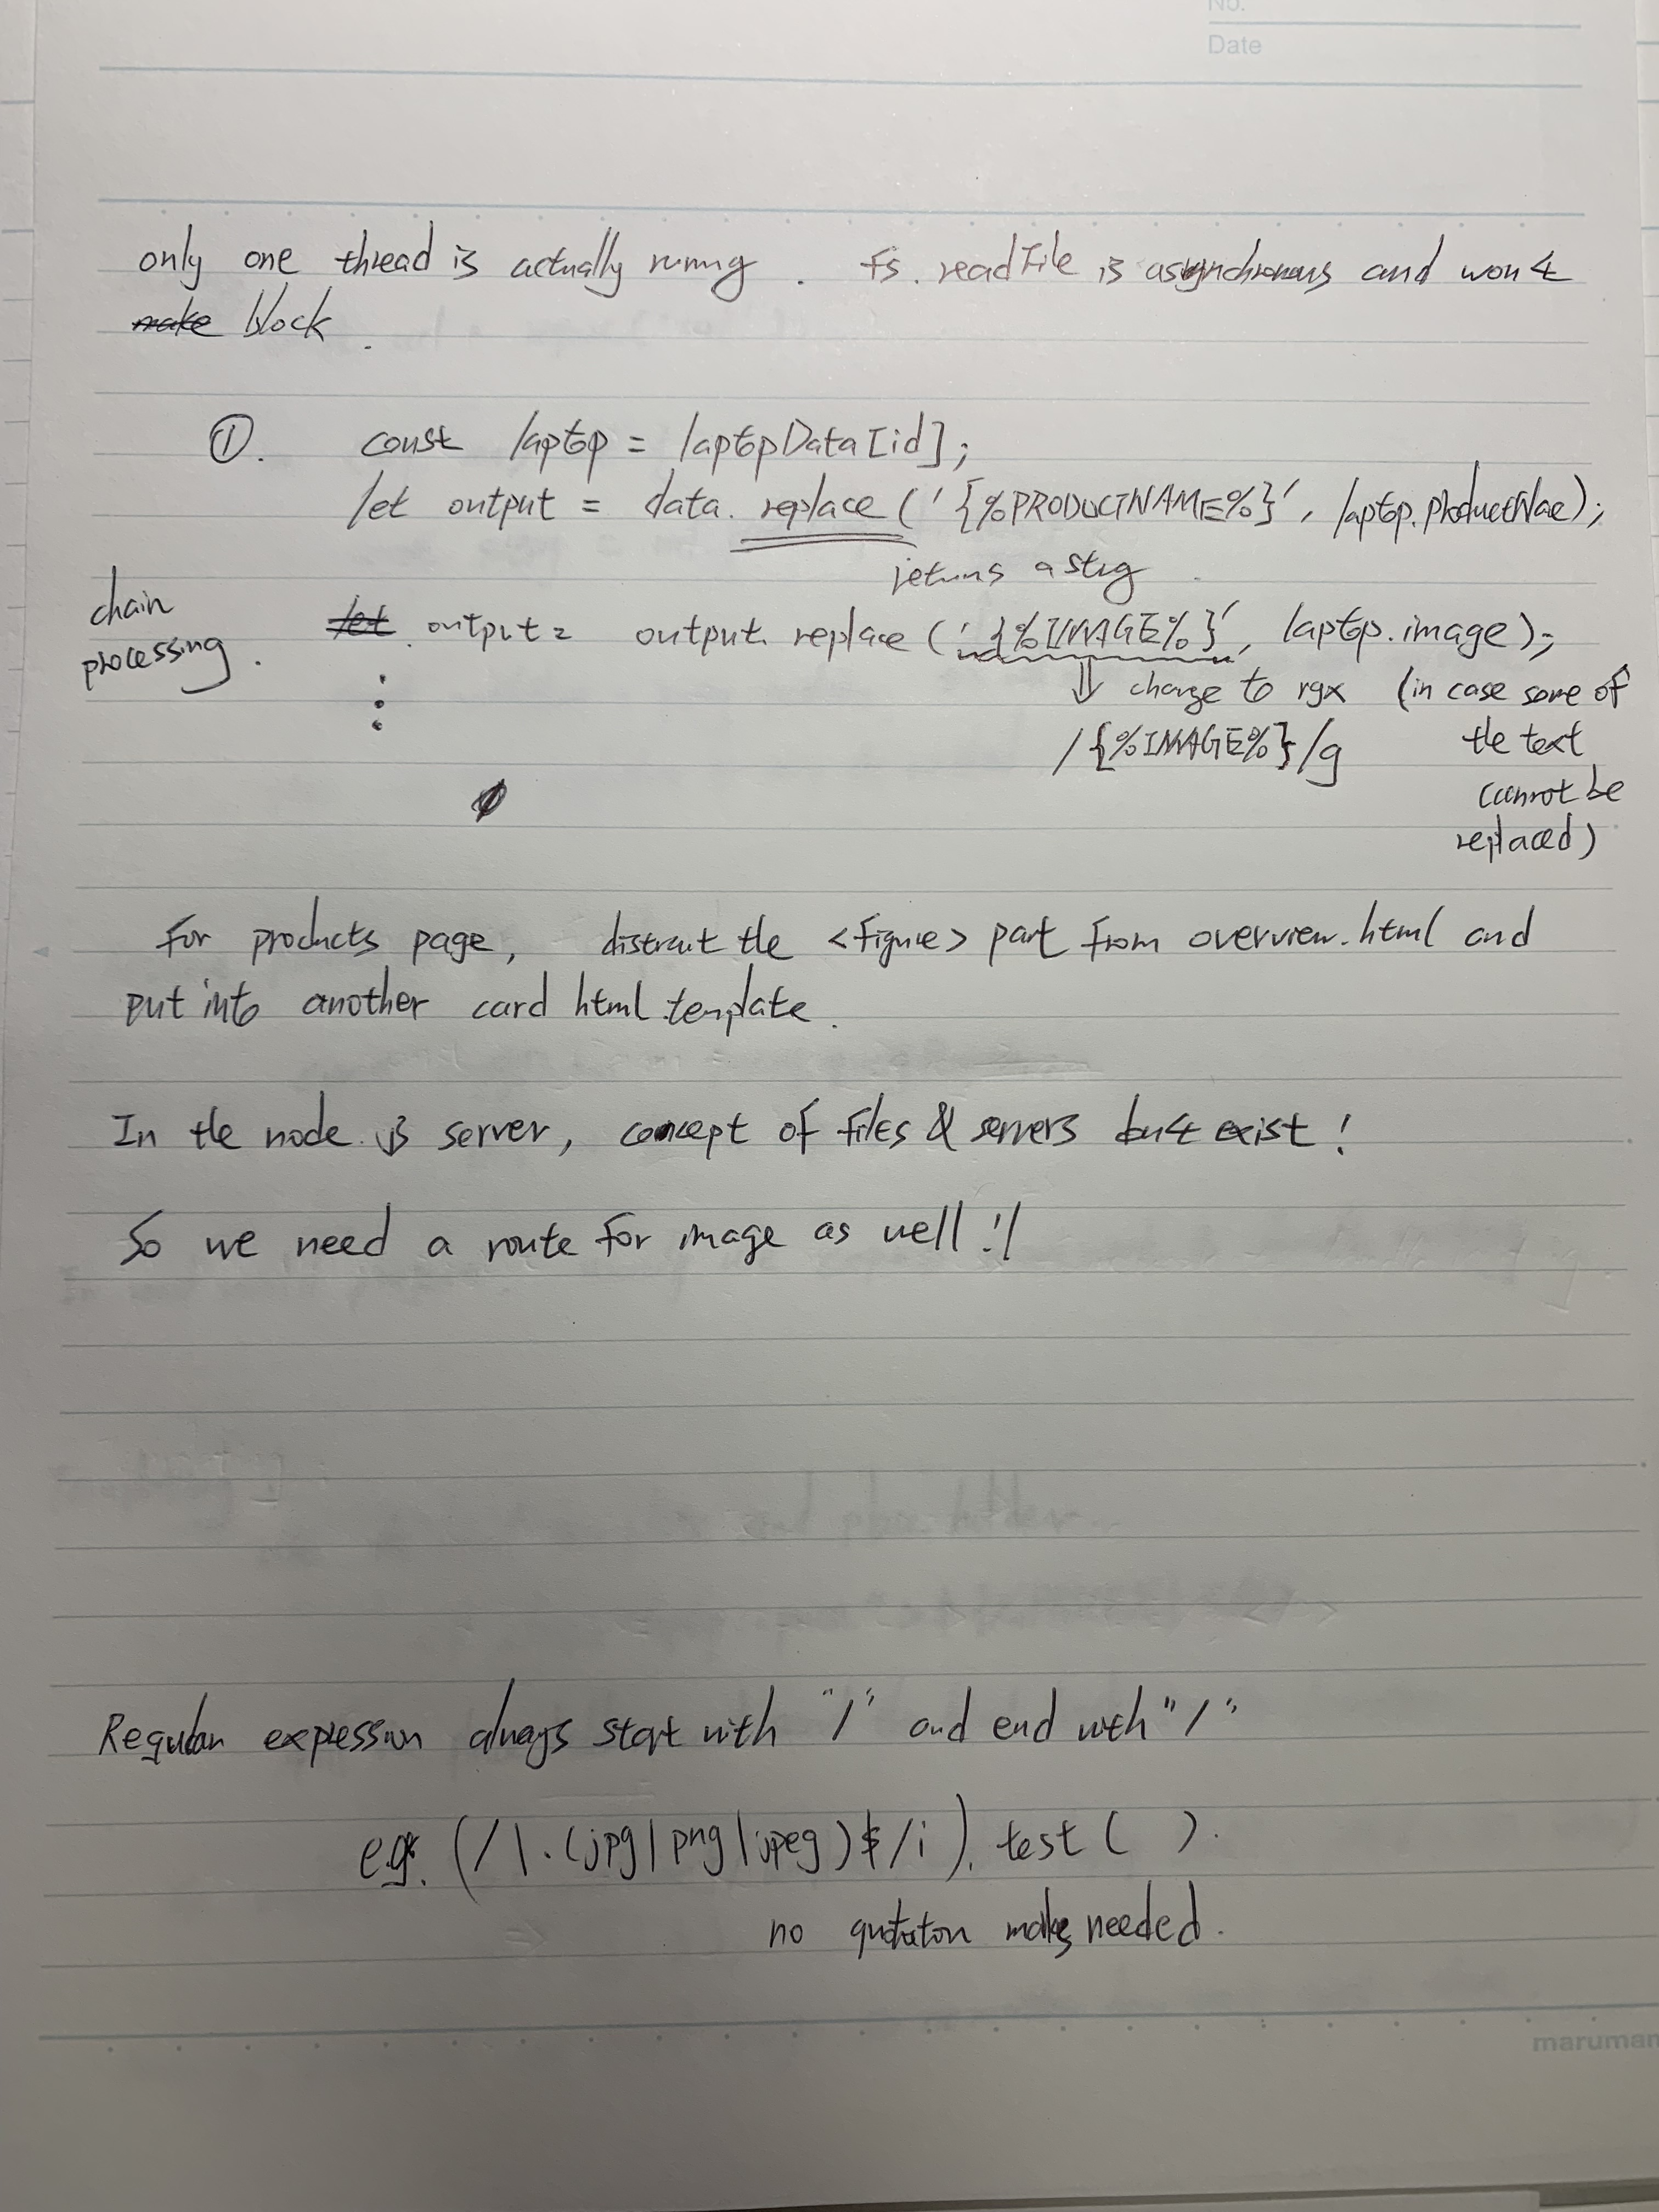 No.
Date
only one thread is actually running . fs. readFile is asynchronous and won't
make block .
①. const laptop = laptopData[id];
let output = data. replace ('{%PRODUCTNAME%}', laptop.productName);
returns a string
chain
processing .
let output = output. replace ('{%IMAGE%}', laptop.image);
⇓ change to rgx (in case some of
/{%IMAGE%}/g the text
cannot be
replaced)
For products page, distract the <figure> part from overview.html and
put into another card html template .
In the node.js server, concept of files & servers don't exist !
So we need a route for image as well !!
Regular expression always start with "/" and end with "/"
e.g. (/\.(jpg|png|jpeg)$/i). test ( ).
no quotation marks needed .
maruman